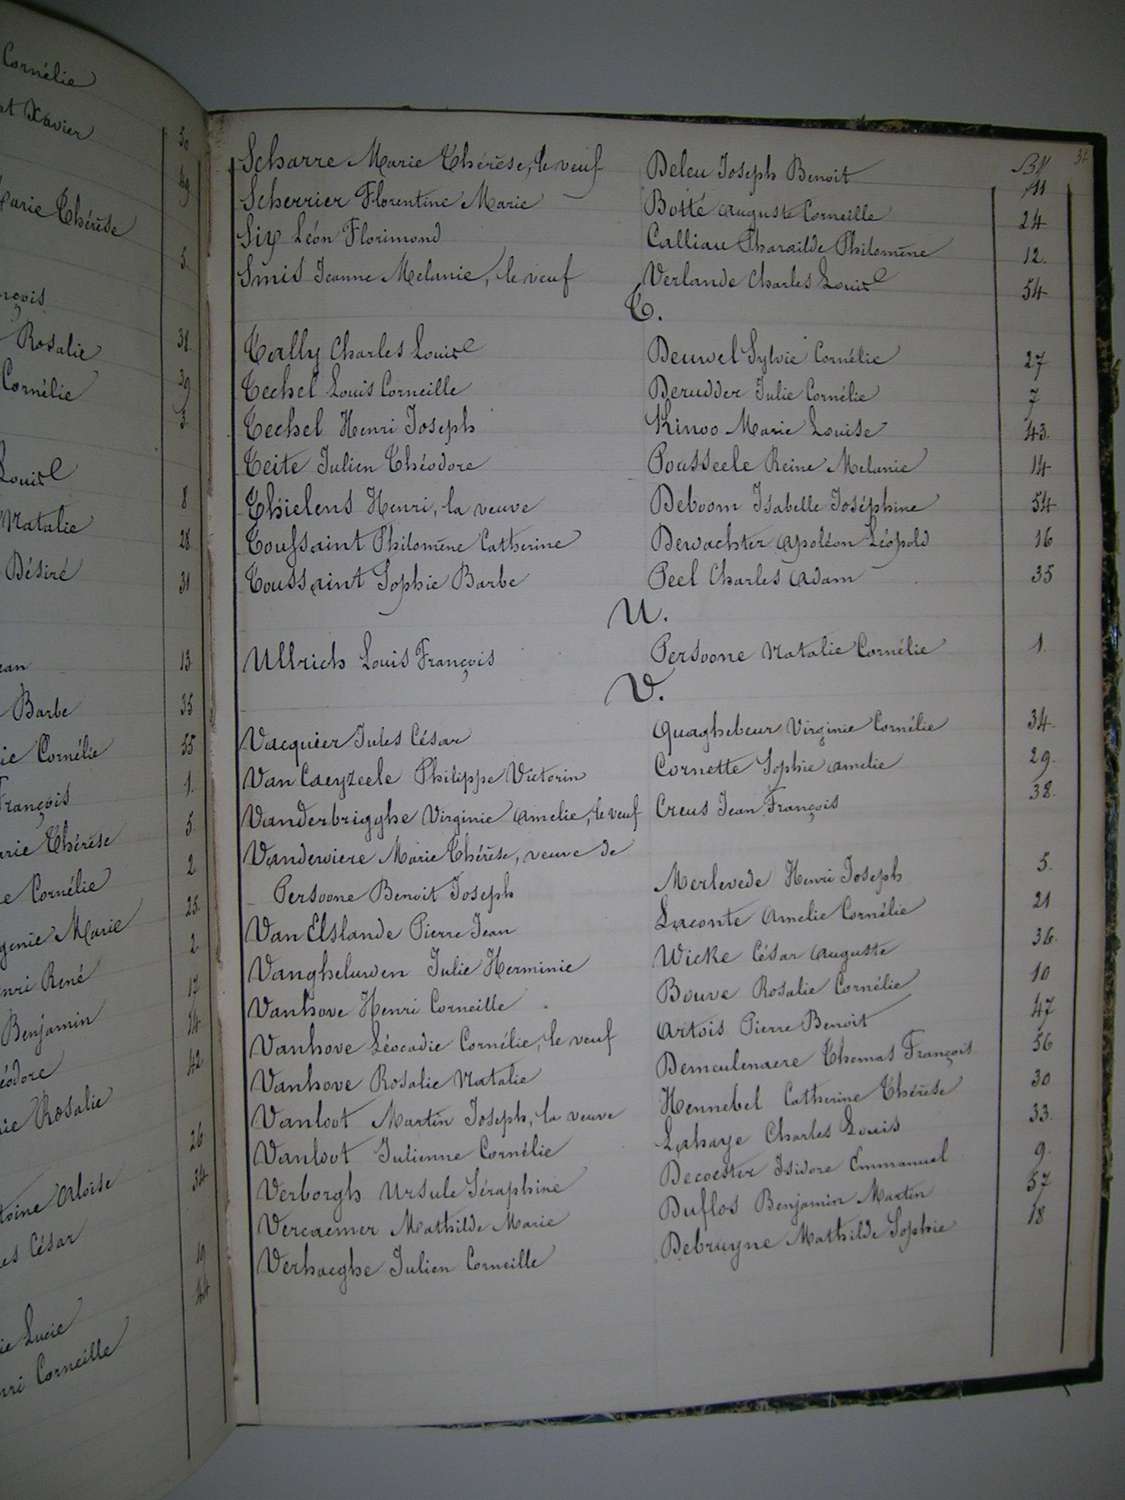 Cornélie
Xavier
Marie Thérèse
Rosalie
Cornélie
Louise
Natalie
Désiré
Barbe
Cornélie
François
Marie Thérèse
Cornélie
Marie
René
Benjamin
Rosalie
Aloïse
César
Lucie
Corneille
50
49
5.
31
39
3.
8
28
31
13
35
55
1.
5.
2
25.
2.
17
14
42
26
34
19
44
34
Scharre Marie Thérèse, le veuf Deleu Joseph Benoit 11
Scherrier Florentine Marie Botté Auguste Corneille 24
Six Léon Florimond Calliau Pharaïlde Philomène 12.
Smis Jeanne Melanie, le veuf Verlande Charles Louis 54
T.
Tally Charles Louis Deuwel Sylvie Cornélie 27
Techel Louis Corneille Derudder Julie Cornélie 7
Techel Henri Joseph Kinoo Marie Louise 43.
Teite Julien Théodore Pousseele Reine Melanie 14
Thielens Henri, la veuve Deboom Isabelle Joséphine 54
Toussaint Philomène Catherine Dewachter Apoléon Léopold 16
Toussaint Sophie Barbe Peel Charles Adam 35
U.
Ullrich Louis François Persoone Natalie Cornélie 1.
V.
Vacquier Jules César Quaghebeur Virginie Cornélie 34
Van Caeyzeele Philippe Victorin Cornette Sophie Amelie 29.
Vanderbrigghe Virginie Amelie, le veuf Creus Jean François 38.
Vanderwiere Marie Thérèse, veuve de
Persoone Benoit Joseph Merlevede Henri Joseph 5.
Van Elslande Pierre Jean Laconte Amelie Cornélie 21
Vangheluwen Julie Herminie Wicke César Auguste 36.
Vanhove Henri Corneille Bouve Rosalie Cornélie 10
Vanhove Léocadie Cornélie, le veuf Artois Pierre Benoit 47
Vanhove Rosalie Natalie Demeulenaere Thomas François 56
Vanloot Martin Joseph, la veuve Hennebel Catherine Thérèse 30
Vanloot Julienne Cornélie Lahaye Charles Louis 33.
Verborgh Ursule Séraphine Decoester Isidore Emmanuel 9.
Vercaemer Mathilde Marie Duflos Benjamin Martin 57
Verhaeghe Julien Corneille Debruyne Mathilde Sophie 18